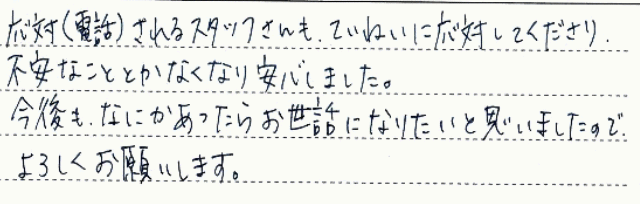 応対(電話)されるスタッフさんも、ていねいに応対してくださり、
不安なこととかなくなり安心しました。
今後も、なにかあったらお世話になりたいと思いましたので、
よろしくお願いします。